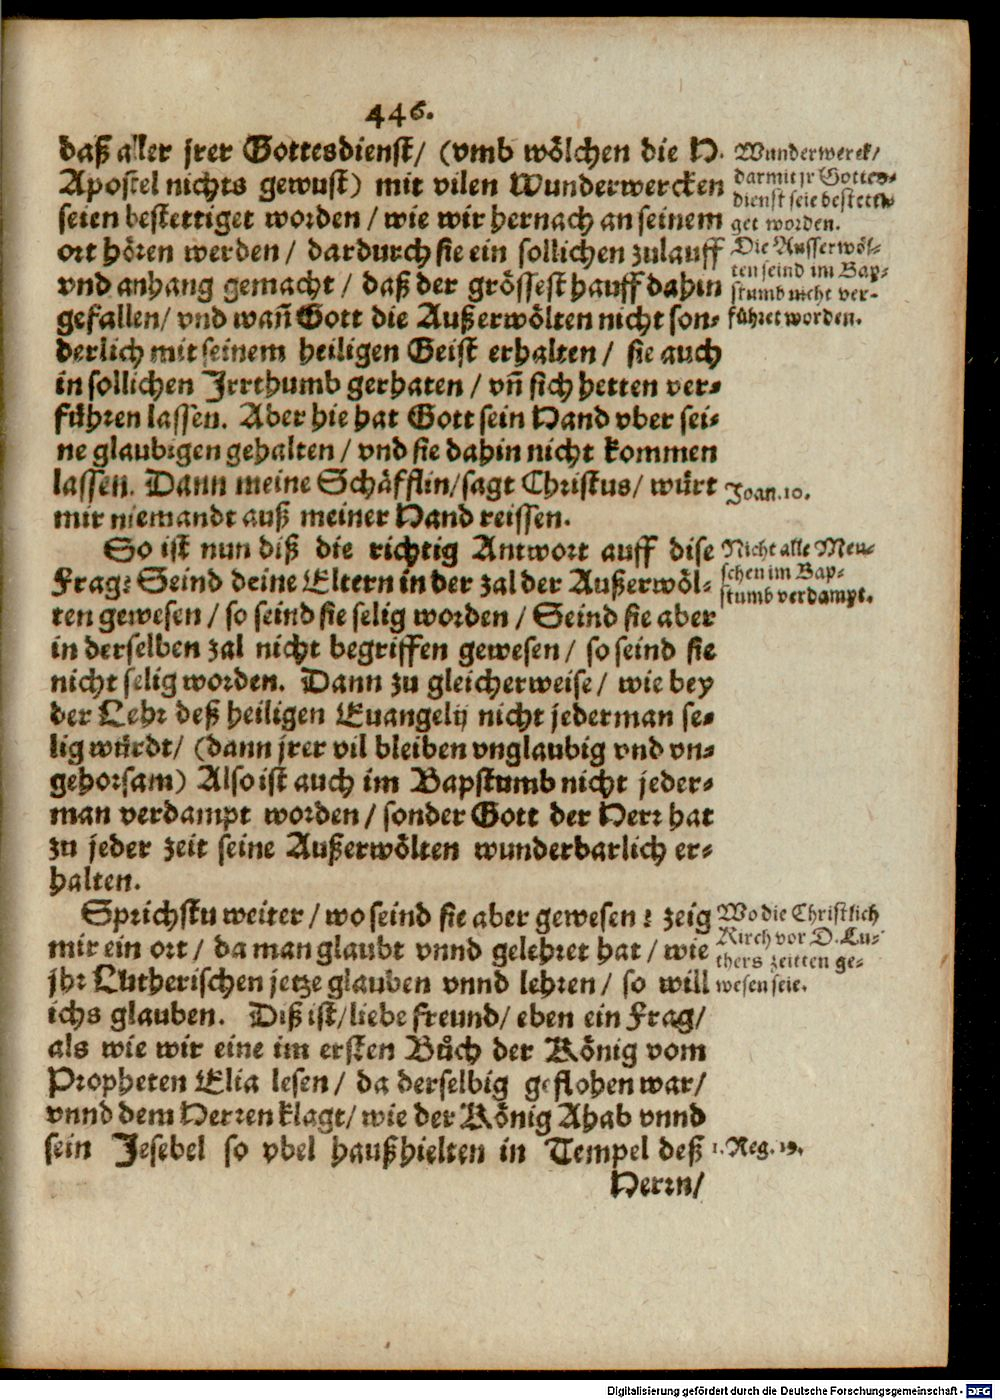 446.
daß aller jrer Gottesdienst/ (vmb wölchen die H.
Apostel nichts gewust) mit vilen Wunderwercken
seien bestettiget worden / wie wir hernach an seinem
ort hören werden / dardurch sie ein sollichen zulauff
vnd anhang gemacht / daß der grössest hauff dahin
gefallen/ vnd wañ Gott die Außerwölten nicht son-
derlich mit seinem heiligen Geist erhalten / sie auch
in sollichen Jrrthumb gerhaten / vñ sich hetten ver-
führen lassen. Aber hie hat Gott sein Hand vber sei-
ne glaubigen gehalten / vnd sie dahin nicht kommen
lassen. Dann meine Schäfflin/ sagt Christus/ würt
mir niemandt auß meiner Hand reissen.
So ist nun diß die richtig Antwort auff dise
Frag: Seind deine Eltern in der zal der Außerwöl-
ten gewesen / so seind sie selig worden / Seind sie aber
in derselben zal nicht begriffen gewesen / so seind sie
nicht selig worden. Dann zu gleicherweise / wie bey
der Lehr deß heiligen Euangelij nicht jederman se-
lig würdt/ (dann jrer vil bleiben vnglaubig vnd vn-
gehorsam) Also ist auch im Bapstumb nicht jeder-
man verdampt worden / sonder Gott der Herr hat
zu jeder zeit seine Außerwölten wunderbarlich er-
halten.
Sprichstu weiter / wo seind sie aber gewesen? zeig
mir ein ort / da man glaubt vnnd gelehret hat / wie
jhr Lutherischen jetze glauben vnnd lehren / so will
ichs glauben. Diß ist/ liebe freund/ eben ein Frag/
als wie wir eine im ersten Bůch der König vom
Propheten Elia lesen / da derselbig geflohen war/
vnnd dem Herren klagt/ wie der König Ahab vnnd
sein Jesebel so vbel haußhielten in Tempel deß
Herrn/
Wunderwerck/
darmit jr Gottes-
dienst seie bestetti-
get worden.
Die Ausserwöl-
ten seind im Bap-
stumb nicht ver-
führet worden.
Joan. 10.
Nicht alle Men-
schen im Bap-
stumb verdampt.
Wo die Christlich
Kirch vor D. Lu-
thers zeitten ge-
wesen seie.
1. Reg. 19.
Digitalisierung gefördert durch die Deutsche Forschungsgemeinschaft - DFG